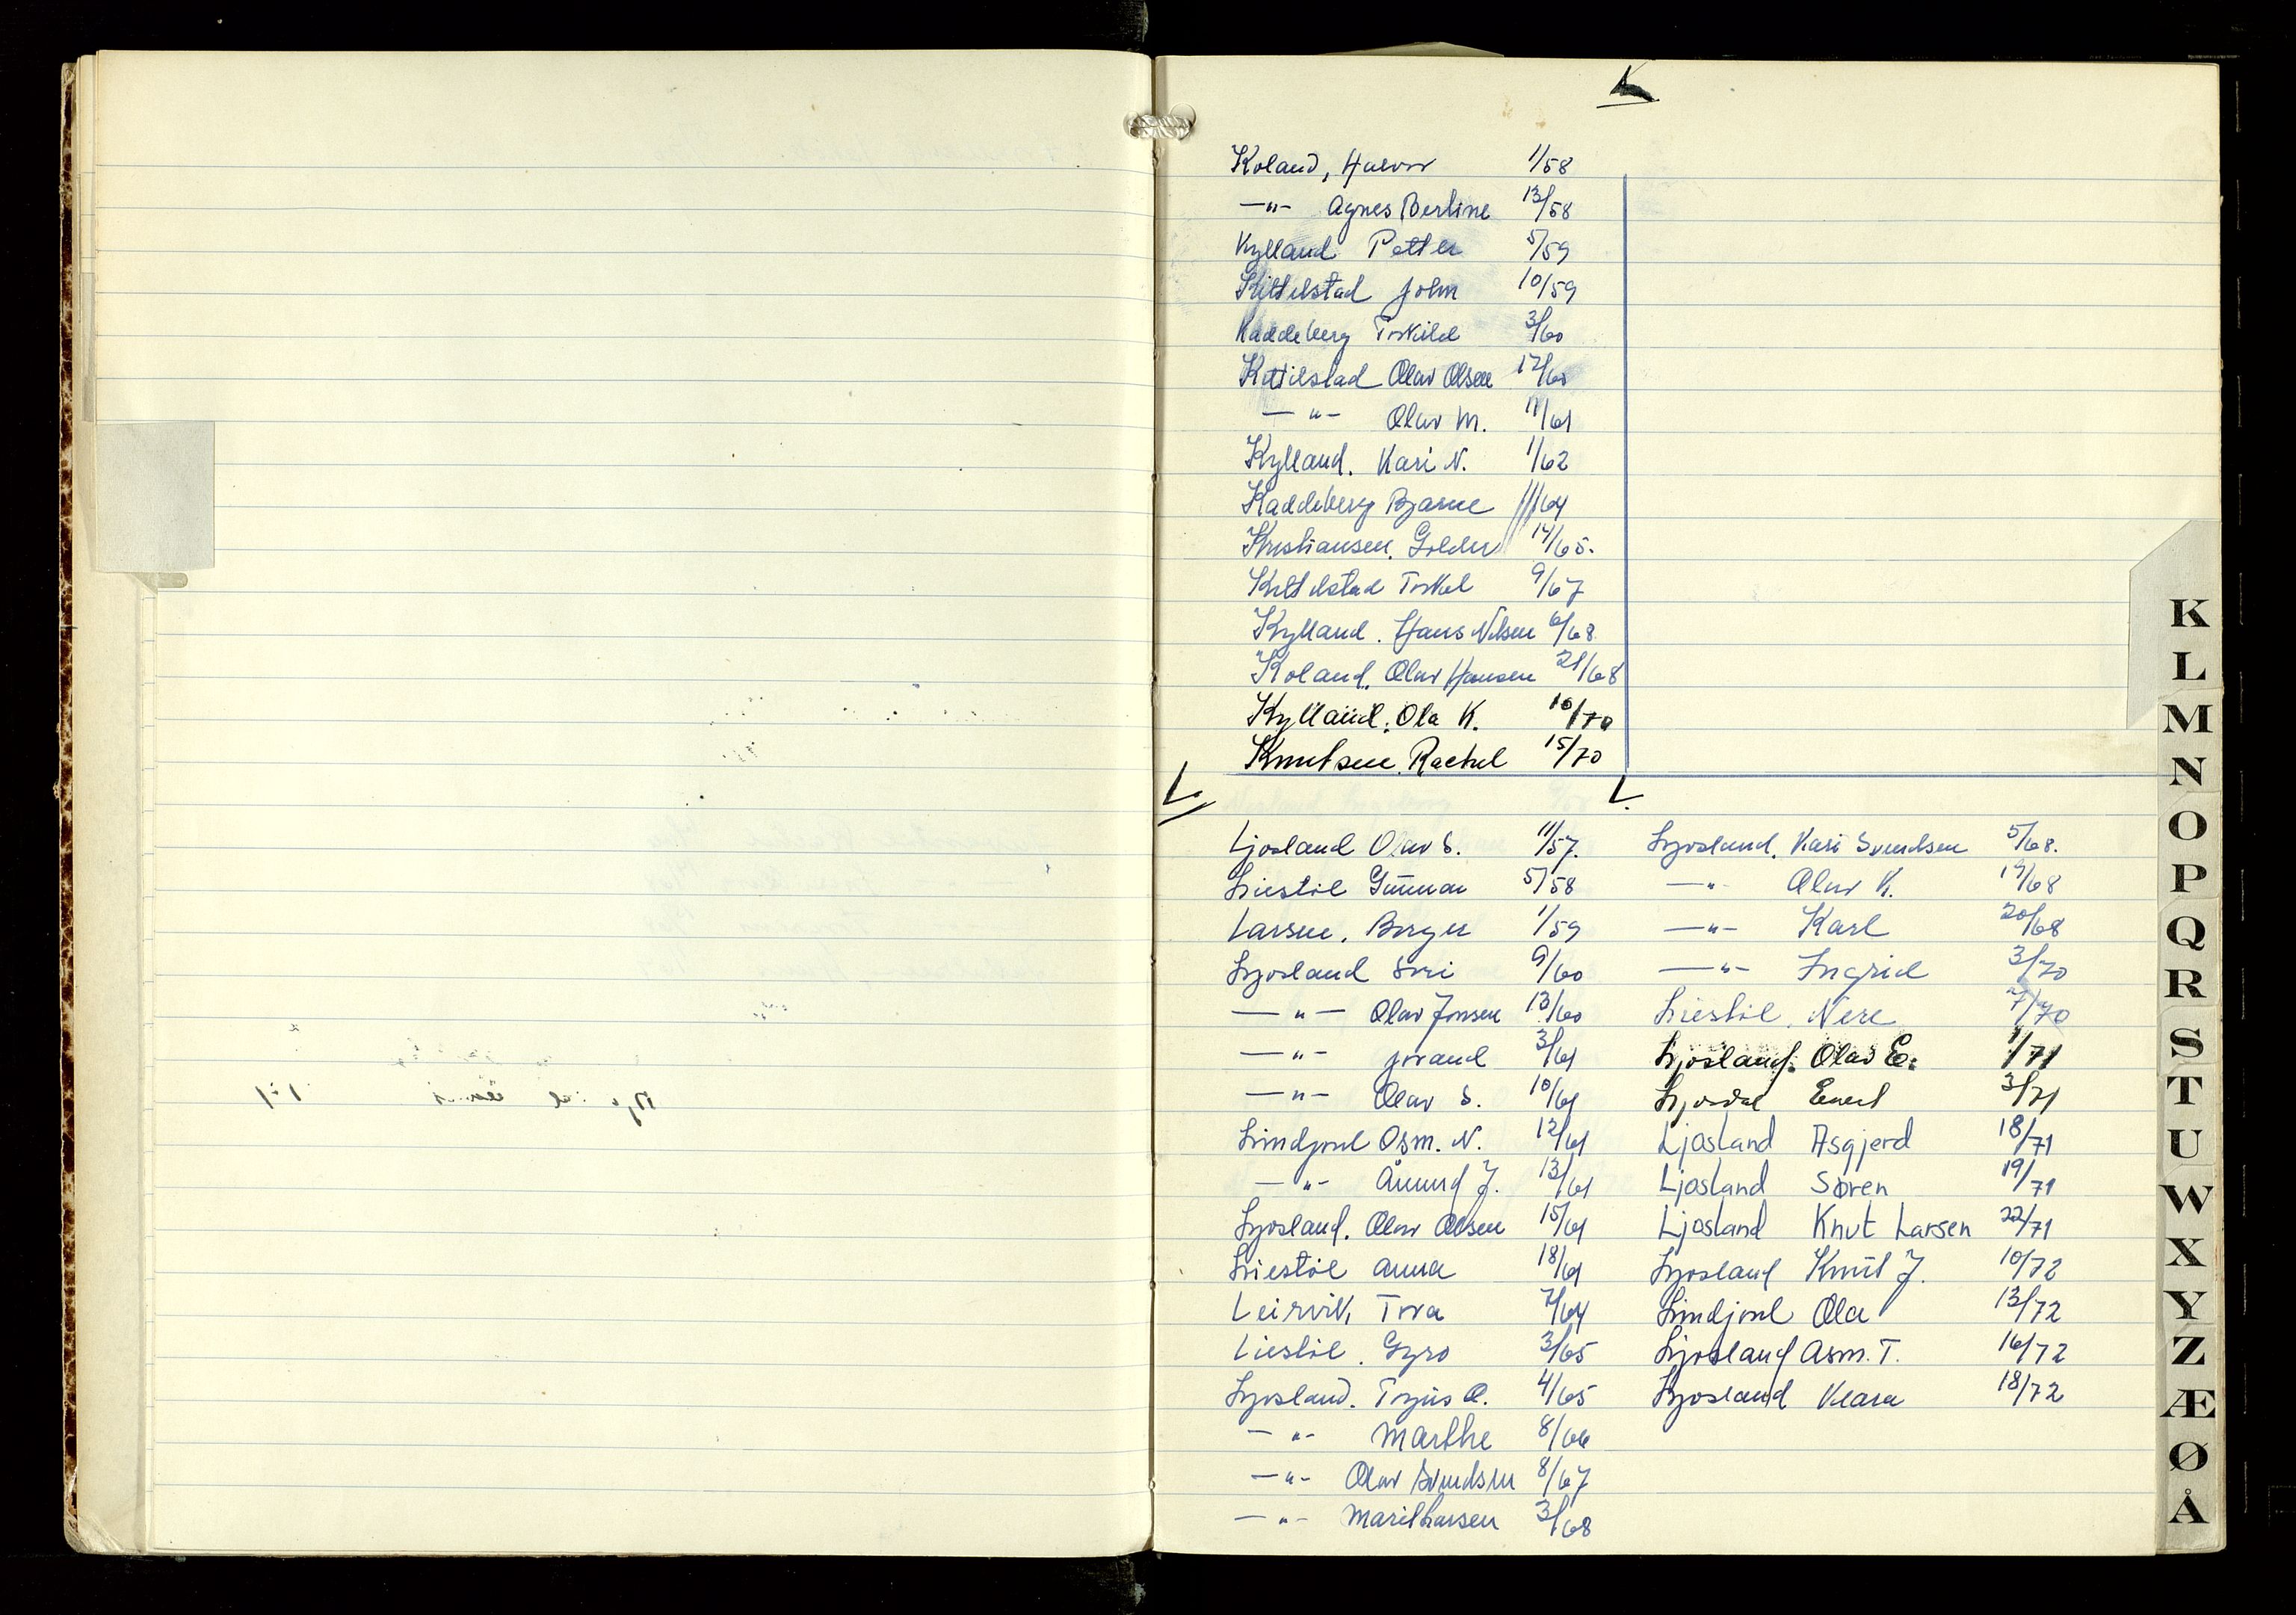 K
Koland, Halvor 1/58
—"— Agnes Berline 13/58
Kylland Petter 5/59
Kittelstad John 10/59
Kaddeberg Torkild 3/60
Kittilstad Olav Olsen 12/60
—"— Olav M. 11/61
Kylland. Kari N. 1/62
Kaddeberg Bjarne 1/64
Kristiansen. Golder 14/65.
Kittelstad Torkel 9/67
Kylland. Hans Nilsen 6/68
Koland. Olav Hansen 21/68
Kylland. Ola K. 10/70
Knutsen. Rachel 15/70
L. L.
Ljosland Olav S. 11/57.
Liestöl Gunnar 5/58
Larsen. Borger 1/59
Ljosland Siri 9/60
—"— Olav Jonsen 13/60
—"— Jorand 3/61
—"— Olav S. 10/61
Lindjord Osm. N. 12/61
—"— Ånund J. 13/61
Ljosland. Olav Olsen 15/61
Liestöl Anna 18/61
Leirvik, Tora 7/64
Liestöl. Gyro 3/65
Ljosland. Tojus O. 4/65
—"— Marthe 8/66
—"— Olav Svendsen 8/67
—"— Marit Larsen 3/68
Ljosland. Kari Svendsen 5/68.
—"— Olav K. 19/68
—"— Karl 20/68
—"— Ingrid 3/70
Liestöl. Nere 7/70
Ljosland. Olav E. 1/71
Ljosdal Enert 3/71
Ljosland Asgjerd 18/71
Ljosland Søren 19/71
Ljosland Knut Larsen 22/71
Ljosland Knut J. 10/72
Lindjord Ola 13/72
Ljosland Asm. T. 16/72
Ljosland Klara 18/72
K
L
M
N
O
P
Q
R
S
T
U
W
X
Y
Z
Æ
Ø
Å